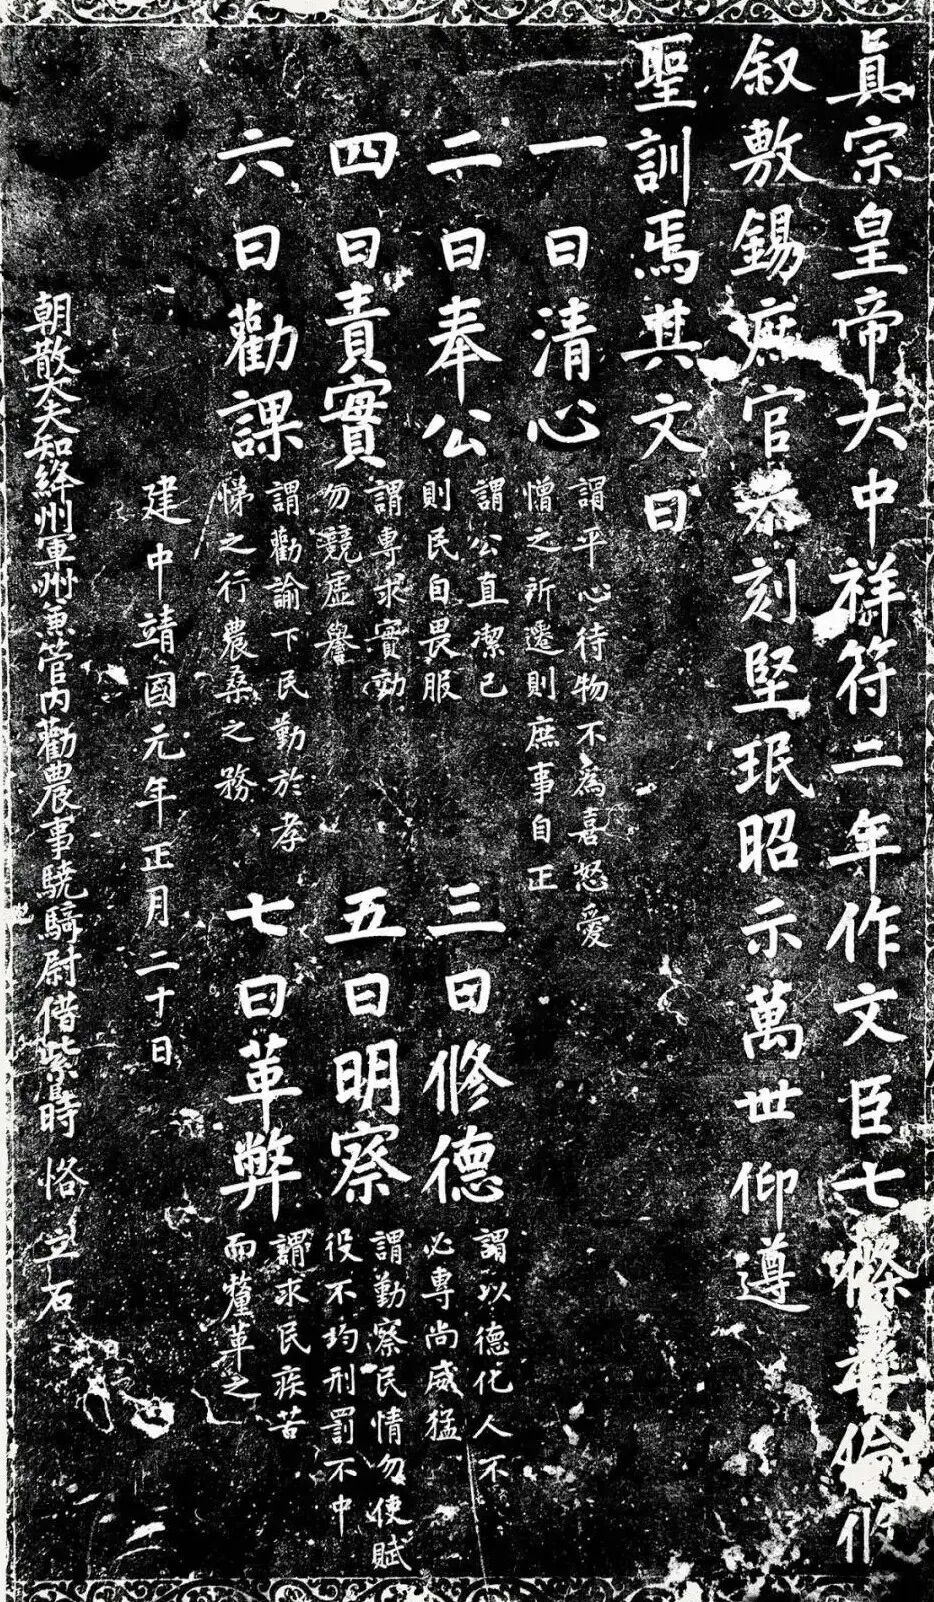 真宗皇帝大中祥符二年作文臣七條普倫攸
叙敷錫庶官恭刻堅珉昭示萬世仰遵
聖訓焉其文曰
一曰清心
謂平心待物不為喜怒愛
憎之所遷則庶事自正
二曰奉公
謂公直潔己
則民自畏服
三曰修德
謂以德化人不
必專尚威猛
四曰責實
謂專求實効
勿競虛譽
五曰明察
謂勤察民情勿使賦
役不均刑罰不中
六曰勸課
謂勸諭下民勤於孝
悌之行農桑之務
七曰革弊
謂求民疾苦
而釐革之
建中靖國元年正月二十日
朝散大夫知絳州軍州兼管內勸農事驍騎尉借紫時恪立石